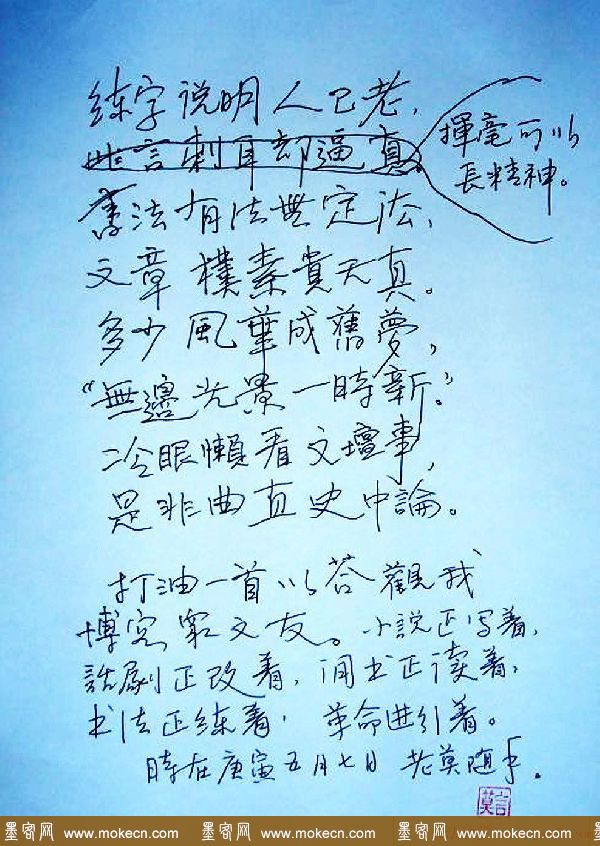 练字说明人已老，
此言刺耳却逼真。
揮毫可以
長精神。
書法有法無定法，
文章樸素貴天真。
多少風華成舊夢，
“無邊光景一時新。”
冷眼懶看文壇事，
是非曲直史中論。
打油一首以答觀我
博客衆文友。小說正写着，
話劇正改着，闲书正读着，
书法正练着，革命进行着。
時在庚寅五月七日 老莫随手。
莫言
墨客网 www.mokecn.com 墨客网 www.mokecn.com 墨客网 www.mokecn.com